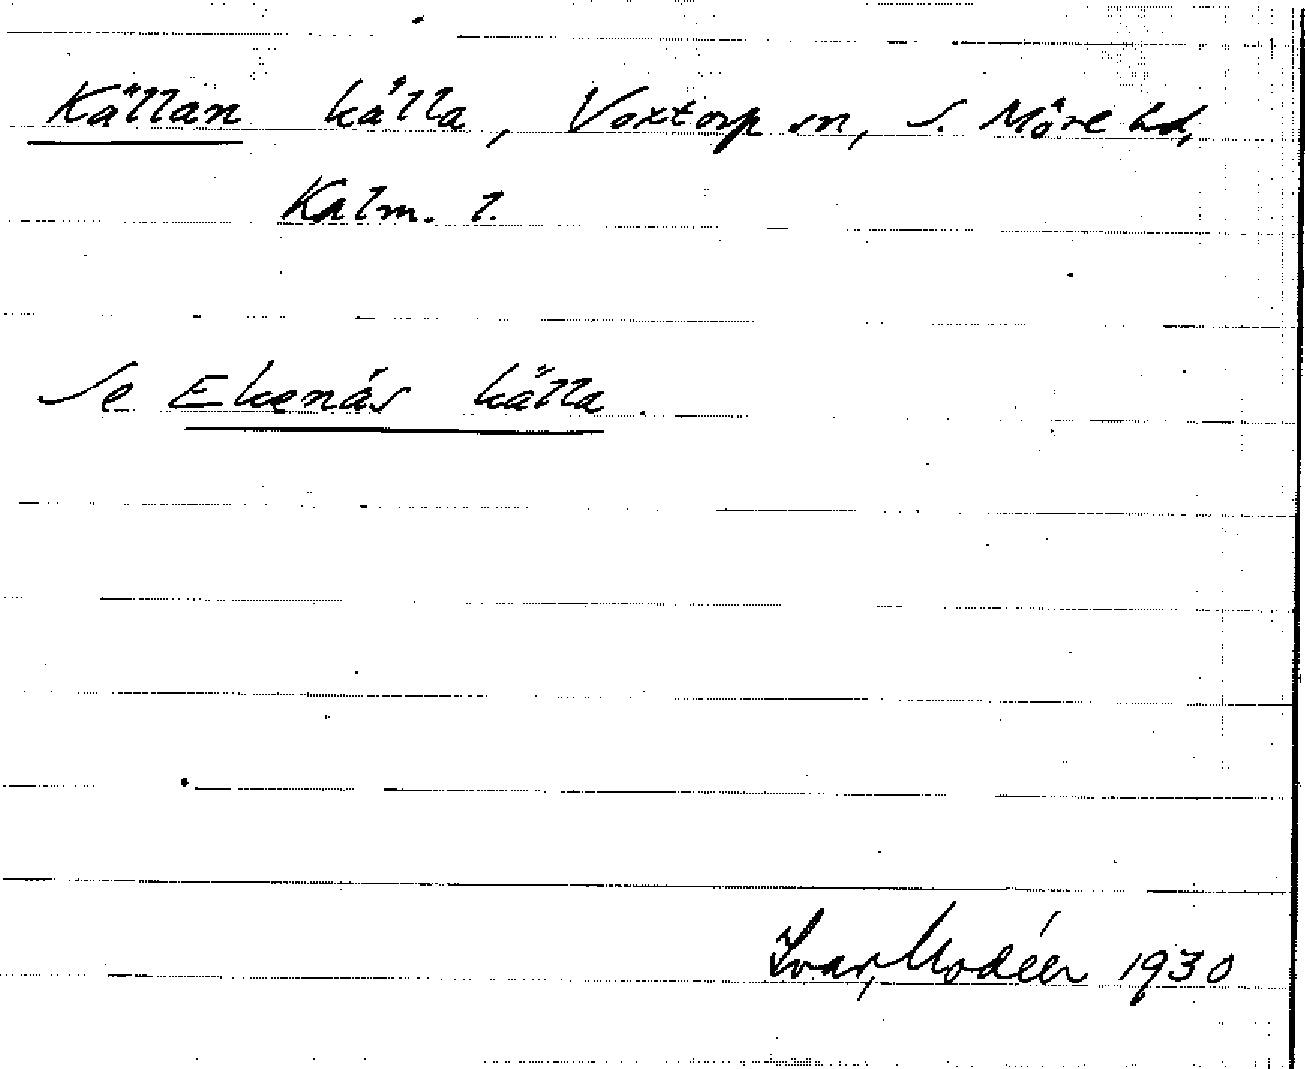 Källan källa, Voxtorp sn, S. Möre hd,
Kalm. l.
Se Ekenäs källa.
Ivar Modéer 1930